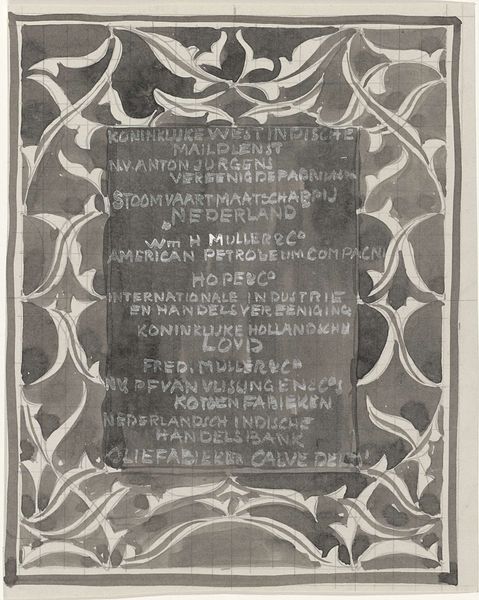 KONINKLIJKE WEST INDISCHE
MAILDIENST
N.V. ANTON JURGENS
VEREENIGDE FABRIEKEN
STOOMVAART MAATSCHAPPIJ
NEDERLAND
Wm H MULLER & Co
AMERICAN PETROLEUM COMPAGNI
HOPE & Co
INTERNATIONALE INDUSTRIE
EN HANDELSVEREENIGING
KONINKLIJKE HOLLANDSCHE
LOYD
FRED. MULLER & Co
N.V. P F VAN VLISSINGEN & Co's
KATOEN FABIEKEN
NEDERLANDSCH INDISCHE
HANDELSBANK
OLIEFABIEKEN CALVE DELFT